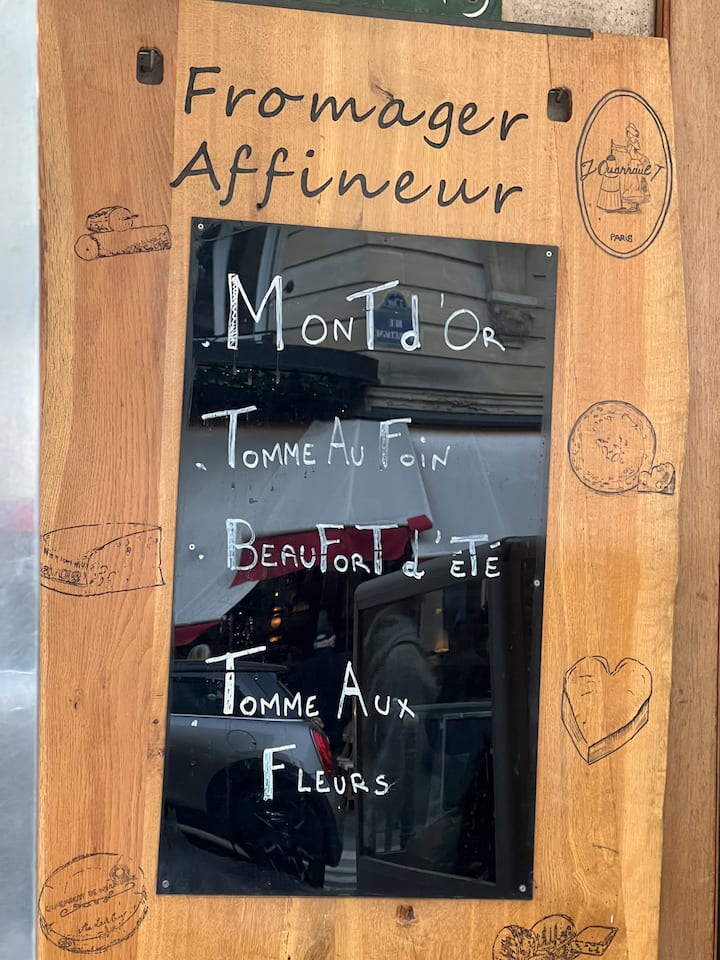 Fromager
Affineur
J Quarrault
PARIS
. MONT d'OR
. TOMME AU FOIN
. BEAUFORT d'ÉTÉ
. TOMME AUX
FLEURS